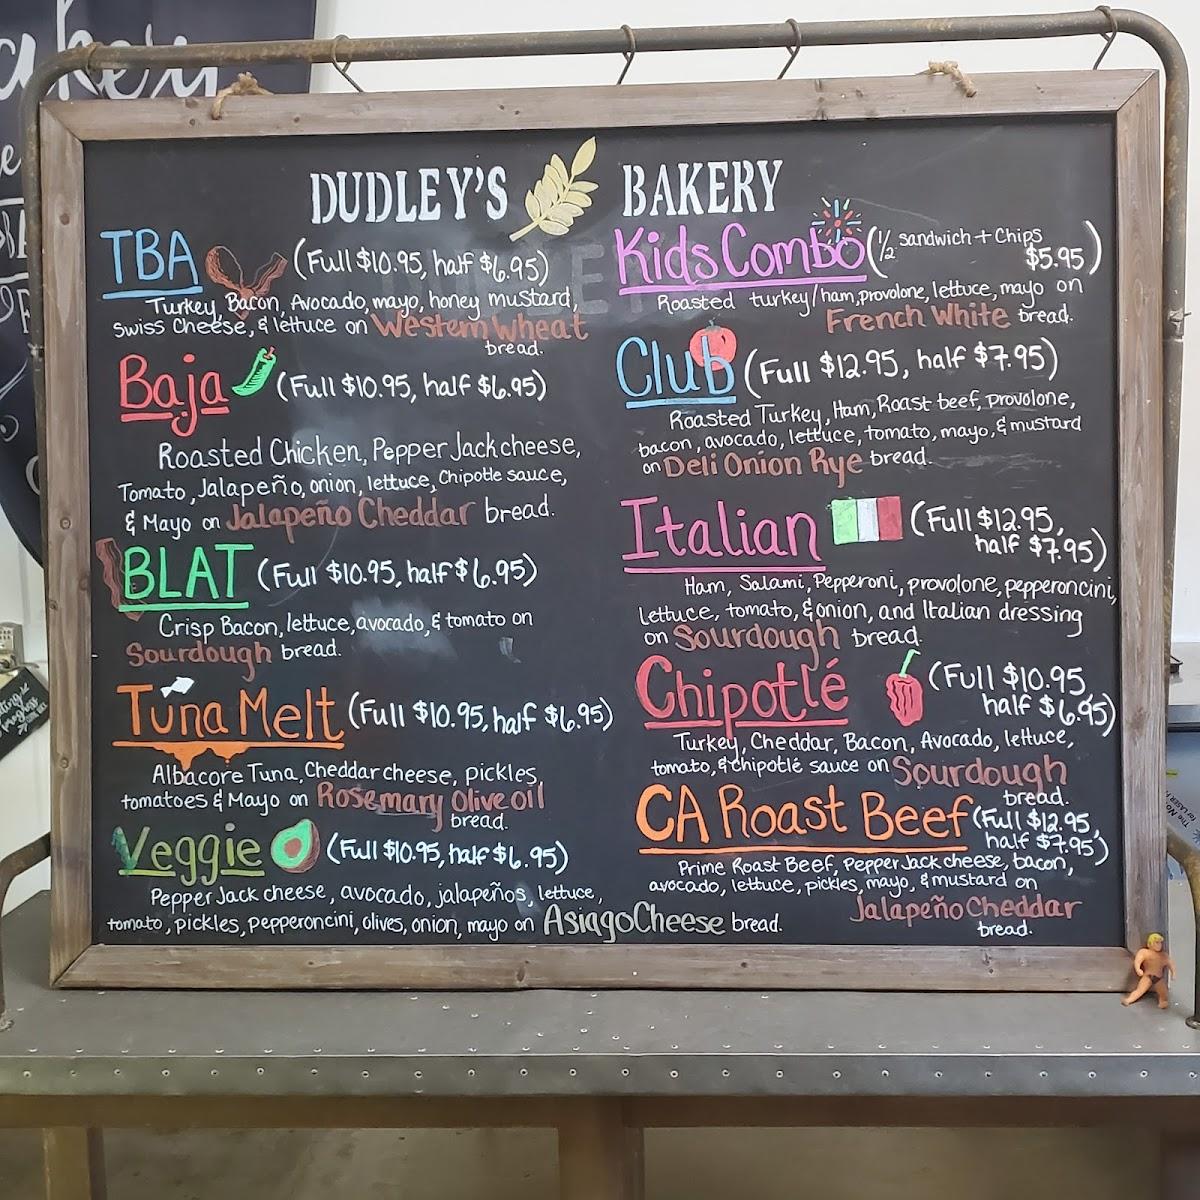 akery
DUDLEY'S BAKERY
TBA (Full $10.95, half $6.95)
Turkey, Bacon, Avocado, mayo, honey mustard,
Swiss Cheese, & lettuce on Western Wheat
bread.
Baja (Full $10.95, half $6.95)
Roasted Chicken, Pepper Jack cheese,
Tomato, Jalapeño, onion, lettuce, Chipotle sauce,
& Mayo on Jalapeño Cheddar bread.
BLAT (Full $10.95, half $6.95)
Crisp Bacon, lettuce, avocado, & tomato on
Sourdough bread.
Tuna Melt (Full $10.95, half $6.95)
Albacore Tuna, Cheddar cheese, pickles,
tomatoes & Mayo on Rosemary Olive oil
bread.
Veggie (Full $10.95, half $6.95)
Pepper Jack cheese, avocado, jalapeños, lettuce,
tomato, pickles, pepperoncini, olives, onion, mayo on Asiago Cheese bread.
Kids Combo (1/2 sandwich + Chips
$5.95)
Roasted turkey/ham, provolone, lettuce, mayo on
French White bread.
Club (Full $12.95, half $7.95)
Roasted Turkey, Ham, Roast beef, provolone,
bacon, avocado, lettuce, tomato, mayo, & mustard
on Deli Onion Rye bread.
Italian (Full $12.95,
half $7.95)
Ham, Salami, Pepperoni, provolone, pepperoncini,
lettuce, tomato, & onion, and Italian dressing
on Sourdough bread.
Chipotlé (Full $10.95,
half $6.95)
Turkey, Cheddar, Bacon, Avocado, lettuce,
tomato, & chipotlé sauce on Sourdough
bread.
CA Roast Beef (Full $12.95,
half $7.95)
Prime Roast Beef, Pepper Jack cheese, bacon,
avocado, lettuce, pickles, mayo, & mustard on
Jalapeño Cheddar
bread.